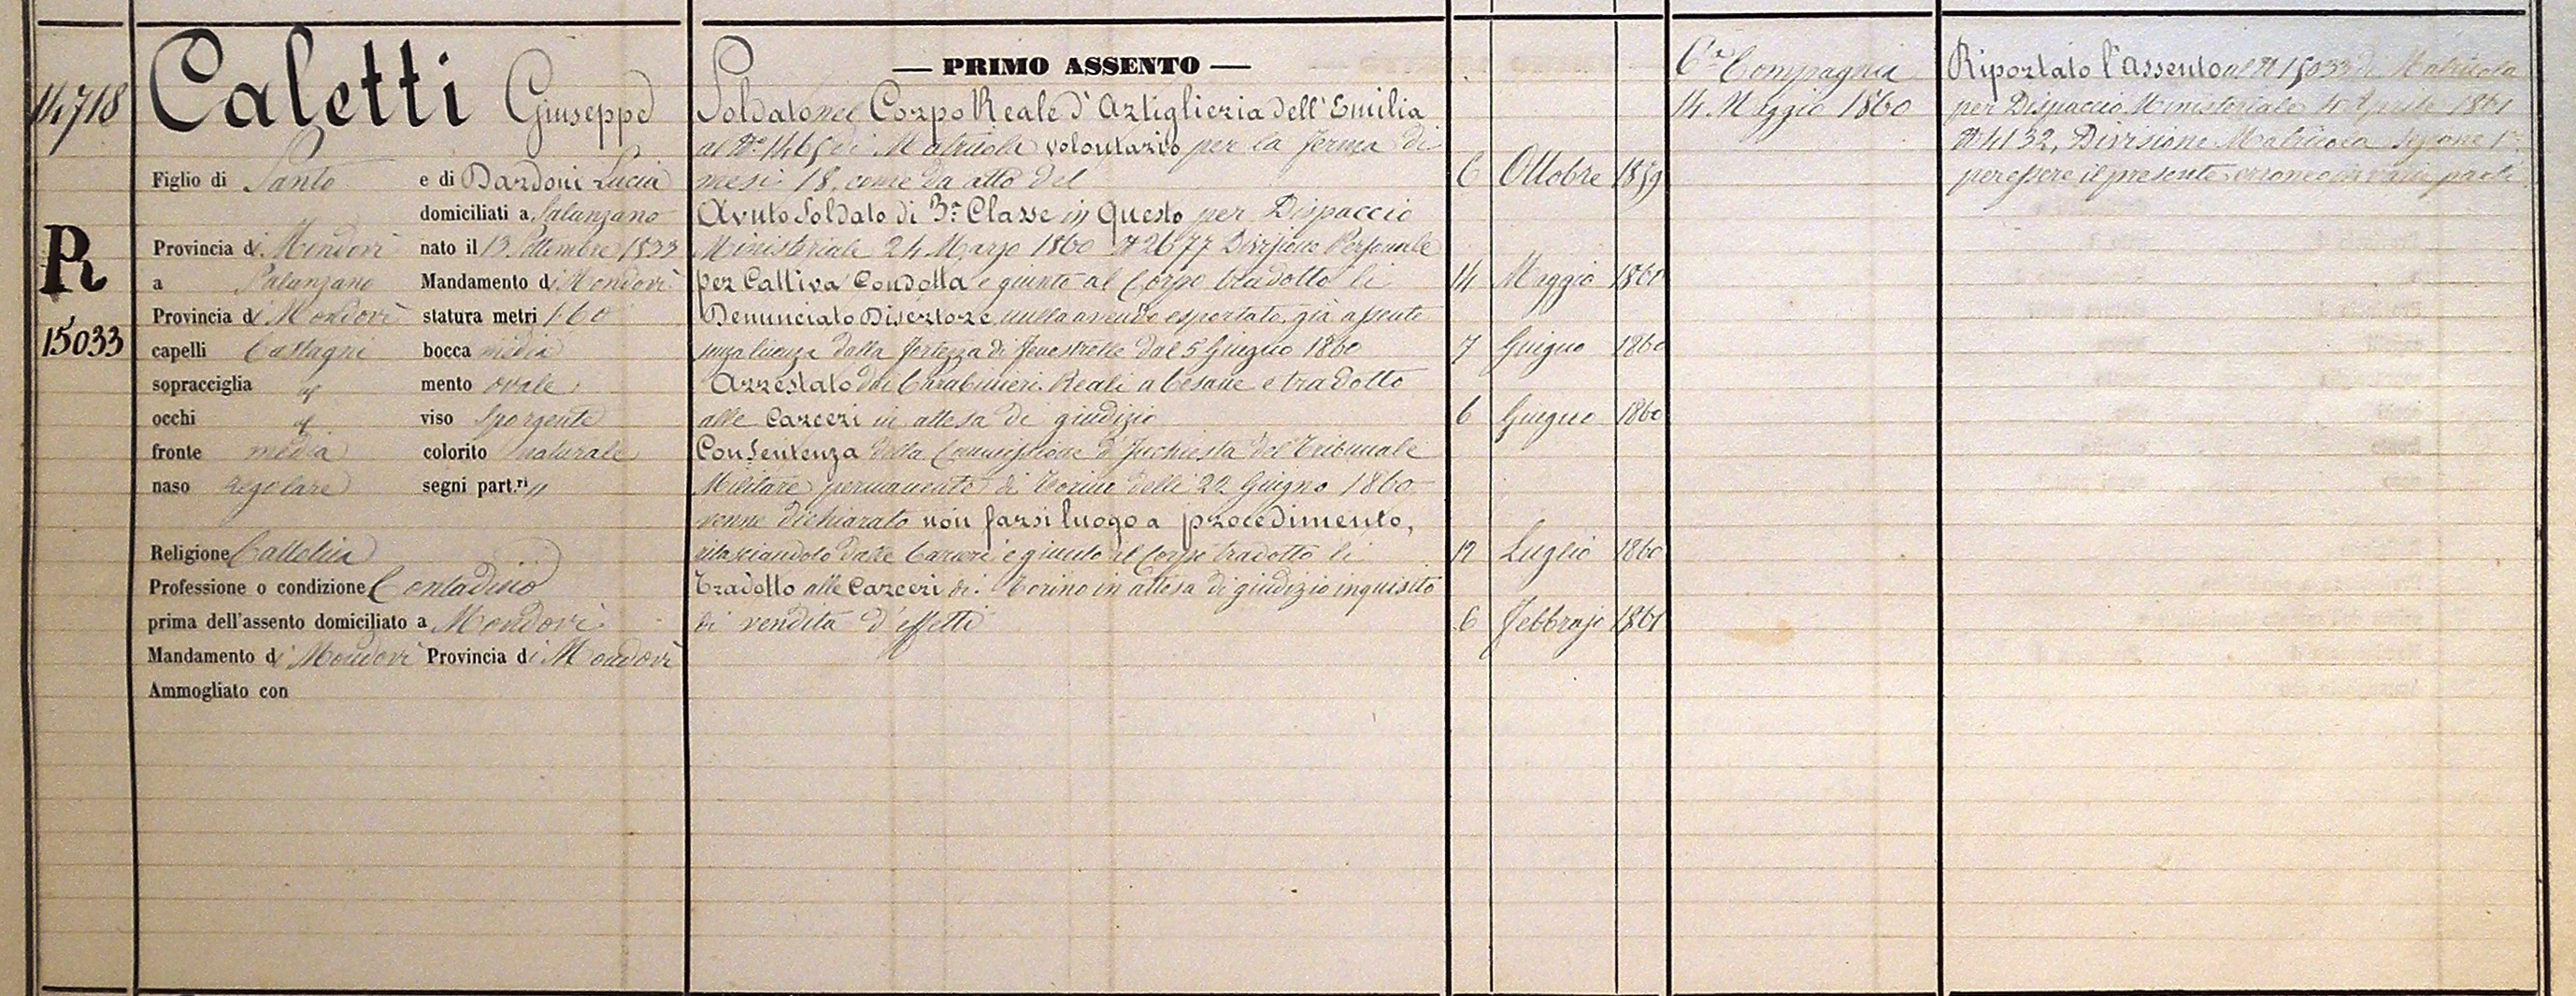 14718
R
15033
Caletti Giuseppe
Figlio di Santo e di Dardoni Lucia
domiciliati a Palanzano
Provincia di Mondovì nato il 13 Settembre 1833
a Palanzano Mandamento di Mondovì
Provincia di Mondovì statura metri 1.60
capelli Castagni bocca media
sopracciglia id mento ovale
occhi id viso Sporgente
fronte media colorito naturale
naso regolare segni part.ri //
Religione Cattolica
Professione o condizione Contadino
prima dell'assento domiciliato a Mondovì
Mandamento di Mondovì Provincia di Mondovì
Ammogliato con
— PRIMO ASSENTO —
Soldato nel Corpo Reale d'Artiglieria dell'Emilia
al N.º 1465 di Matricola volontario per la ferma di
mesi 18, come da atto del 6 Ottobre 1859
Avuto Soldato di 3.ª Classe in Questo per Dispaccio
Ministeriale 24 Marzo 1860 N 2677 Divisione Personale
per Cattiva Condotta e giunto al Corpo tradotto li 14 Maggio 1860
Denunciato Disertore nulla avendo esportato, già assente
senza licenza dalla Fortezza di Fenestrelle dal 5 Giugno 1860 7 Giugno 1860
Arrestato dai Carabinieri Reali a Cesane e tradotto
alle Carceri in attesa di giudizio 6 Giugno 1860
Con Sentenza della Commissione d'Inchiesta del Tribunale
Militare permanente di Torino delli 22 Giugno 1860
venne dichiarato non farsi luogo a procedimento,
rilasciandolo dalle Carceri e giunto al Corpo tradotto li 12 Luglio 1860
Tradotto alle Carceri di Torino in attesa di giudizio inquisito
di vendita d'effetti 6 Febbrajo 1861
6.ª Compagnia
14 Maggio 1860
Riportato l'assento al N 15033 di Matricola
per Dispaccio Ministeriale 4 Aprile 1861
N 4132, Divisione Matricola Sezione 1.ª
per essere il presente erroneo in varie parti